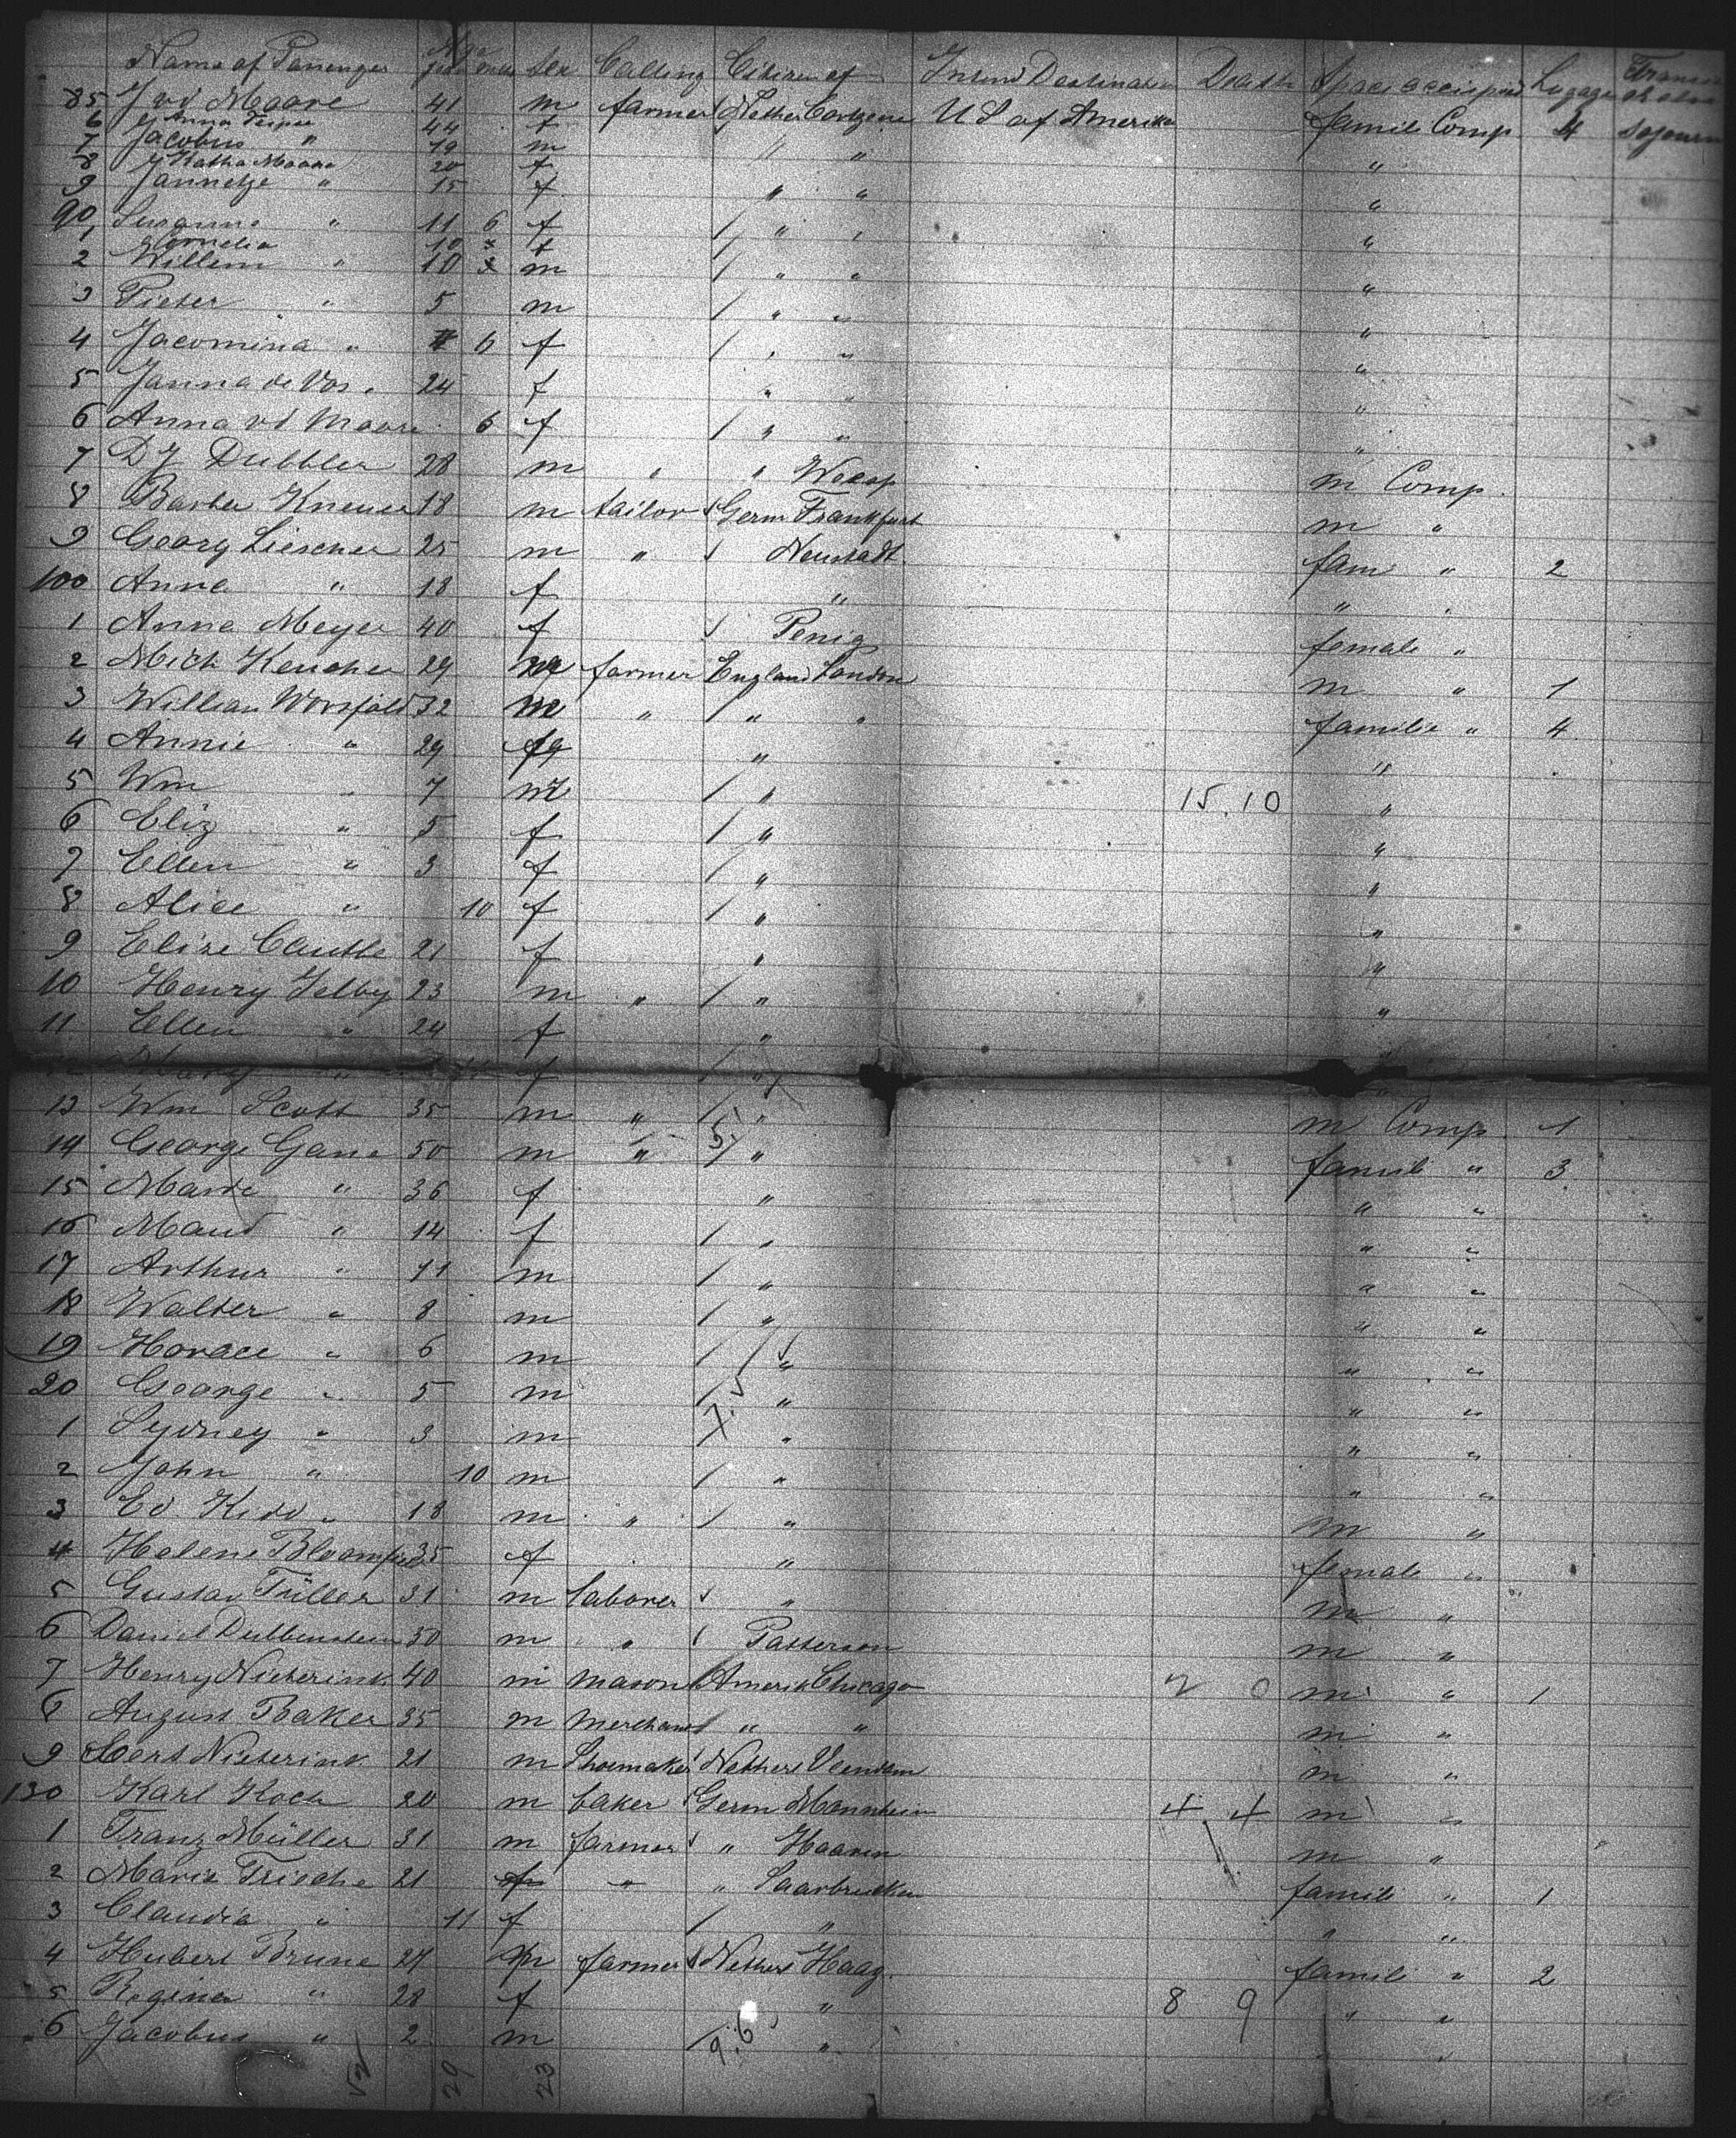 Name of Passenger Age years mths Sex Calling Citizen of Intend Destination Death Space occupied Lugage Transit or also
85 J vd Maare 41 m farmer Nether Cortgene U S of Amerika famil Comp 4 sojourn
6 Anna 44 f
7 Jacobus " 19 m " " "
8 Katha Maare 20 f
9 Jannetje " 15 f " " "
90 Susanna " 11 6 f " "
1 Cornelia 10 f
2 Willem " 10 m " " "
3 Pieter " 5 m " " "
4 Jacomina " 6 f " " "
5 Janna de Vos " 24 f " " "
6 Anna vd Maare 6 f " " "
7 D J Dubbler 28 m " " m Comp
8 18 m tailor Germ Frankfurt m "
9 Georg Liescher 25 m " Neustadt fam " 2
100 Anna " 18 f " " "
1 Anna Meyer 40 f Penig female "
2 Mich Keucher 29 m farmer England London m " 1
3 William Worsfold 32 m " " " familie " 4
4 Annie " 29 f " "
5 Wm " 7 m " 15.10 "
6 Eliz " 5 f " "
7 Ellen " 3 f " "
8 Alice " 10 f " "
9 Elise 21 f " "
10 Henry Selby 23 m " " "
11 Ellen " 24 f "
12 Mary " f "
13 Wm Scott 35 m " " m Comp 1
14 George Gane 50 m " " famil " 3
15 " 36 f " " "
16 Maud " 14 f " " "
17 Arthur " 11 m " " "
18 Walter " 8 m " " "
19 Horace " 6 m " " "
20 George " 5 m " " "
1 Sydney " 3 m " " "
2 John " 10 m " " "
3 Ed. Kidd " 18 m " " m "
4 Helene Bloomfield 35 f " female "
5 Gustav Tüller 31 m laborer " m "
6 Daniel 30 m " Patterson m "
7 Henry Nieterink 40 m mason Amerik Chicago 2 0 m " 1
8 August Baker 35 m merchant " " m "
9 Gert Nieterink 21 m Shoemaker Netherl Veendam m "
130 Karl Koch 20 m baker Germ Mannheim 4 4 m "
1 Franz Müller 31 m farmer " Haaren m "
2 Marie Trioche 21 f " " Saarbrucken famili " 1
3 Claudia " 11 f " " "
4 Hubert Brune 27 m farmer Nethers Haag famili " 2
5 Regina " 28 f " 8 9 " "
6 Jacobus " 2 m 9.6 " "
29 23